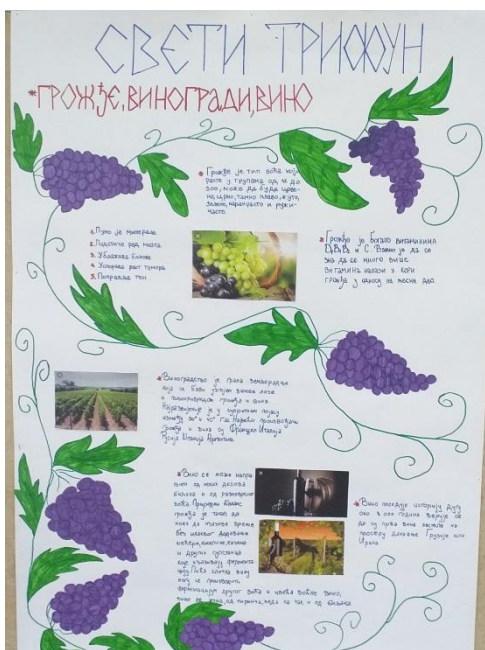 СВЕТИ ТРИФУН
*ГРОЖЂЕ, ВИНОГРАДИ, ВИНО
*Грожђе је тип воћа који
расте у групама од 6 до
300, може да буде црве-
но, црно, тамно плаво, жуто,
зелено, наранџасто и ружи-
часто.
1. Пуно је минерала
2. Подстиче рад мозга
3. Ублажава болове
4. Успорава раст тумора
5. Поправља тен
*Грожђе је богато витаминима
и С. Важно је да се
зна да се много више
витамина налази у кори
грожђа у односу на месни део
*Виноградство је грана земљорадње
која се бави узгојем винове лозе
и производњом грожђа и вина
Најразвијеније је у
између 30° и 40° Највећи произвођачи
грожђа и вина су Француска Италија
Шпанија Аргентина
*Вино се може напра
вити од неких делова
биљака и од разноврсног
воћа Природни
грожђа је такав да
може да
без икаквог додавања
шећера, киселине, ензима
и других супстанци
ферментацијом другог воћа и
вино од меда па чак и од биљака
*Вино поседује историју дугу
око 8 000 година верује се
да су прва вина настала на
простору данашње Грузије или
Ирана.